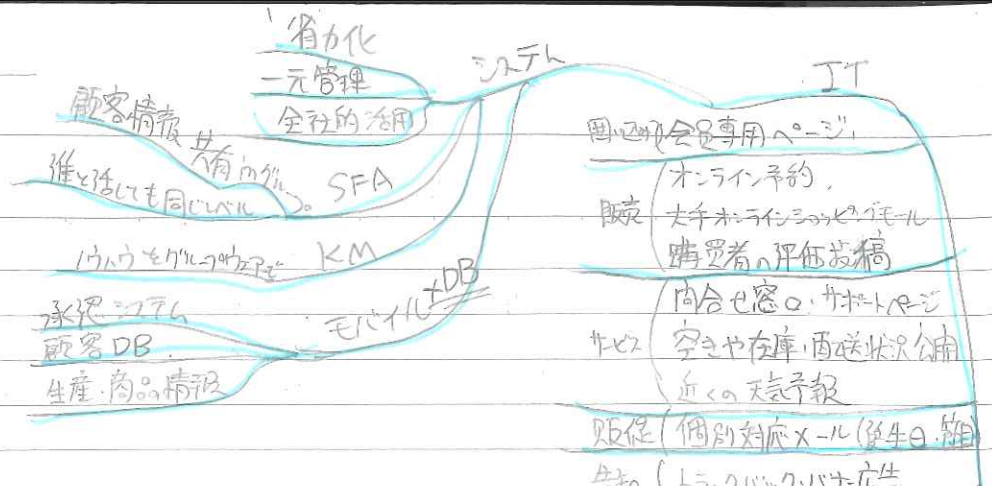 省力化
一元管理
全社的活用
システム
顧客情報
共有 in グループ
誰と話しても同じレベル
SFA
ノウハウをグループウェアで
KM
モバイル+DB
承認システム
顧客DB
生産・商品情報
IT
囲い込み 会員専用ページ
販売
オンライン予約
大手オンラインショッピングモール
購買者の評価投稿
サービス
問合せ窓口・サポートページ
空きや在庫・配送状況公開
近くの天気予報
販促 個別対応メール(誕生日・節目)
トラックバック・バナー広告